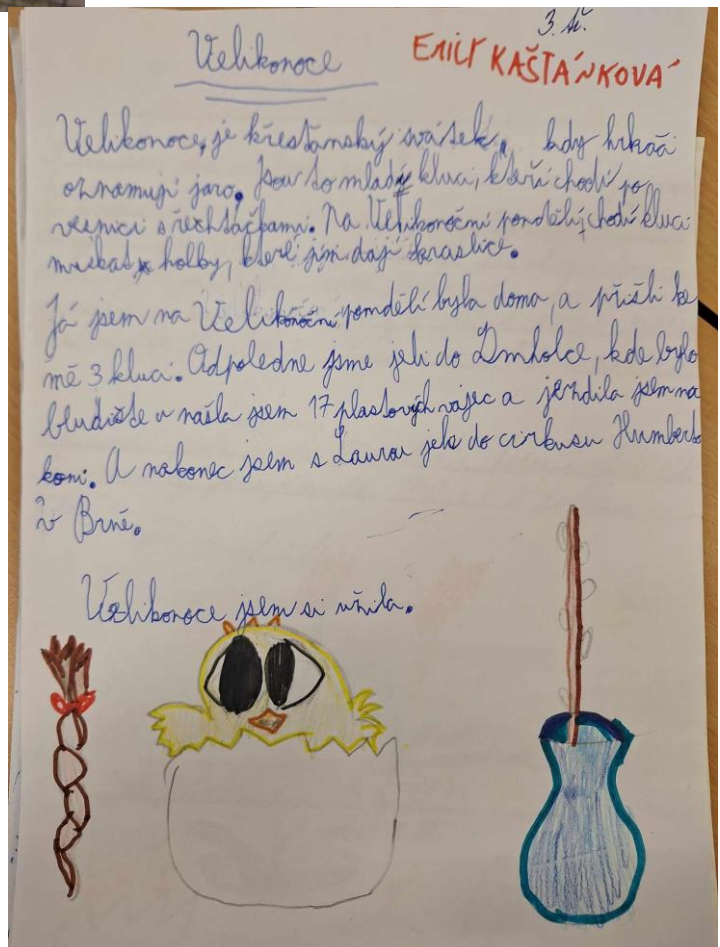 3. tř.
Velikonoce
EMILY KAŠTÁNKOVÁ
Velikonoce, je křesťanský svátek, kdy hrkači
oznamují jaro. Jsou to mladý kluci, kteří chodí po
vesnici s řechtačkami. Na Velikonoční pondělí, chodí kluci
mrskat holby, které jim dají kraslice.
Já jsem na Velikonoční pomdělí byla doma, a přišli ke
mě 3 kluci. Odpoledne jsme jeli do Drnholce, kde bylo
bludiště a našla jsem 17 plastových vajec a jezdila jsem na
koni. A nakonec jsem s Laurou jela do cirkusu Humberto
v Brně.
Velikonoce jsem si užila.